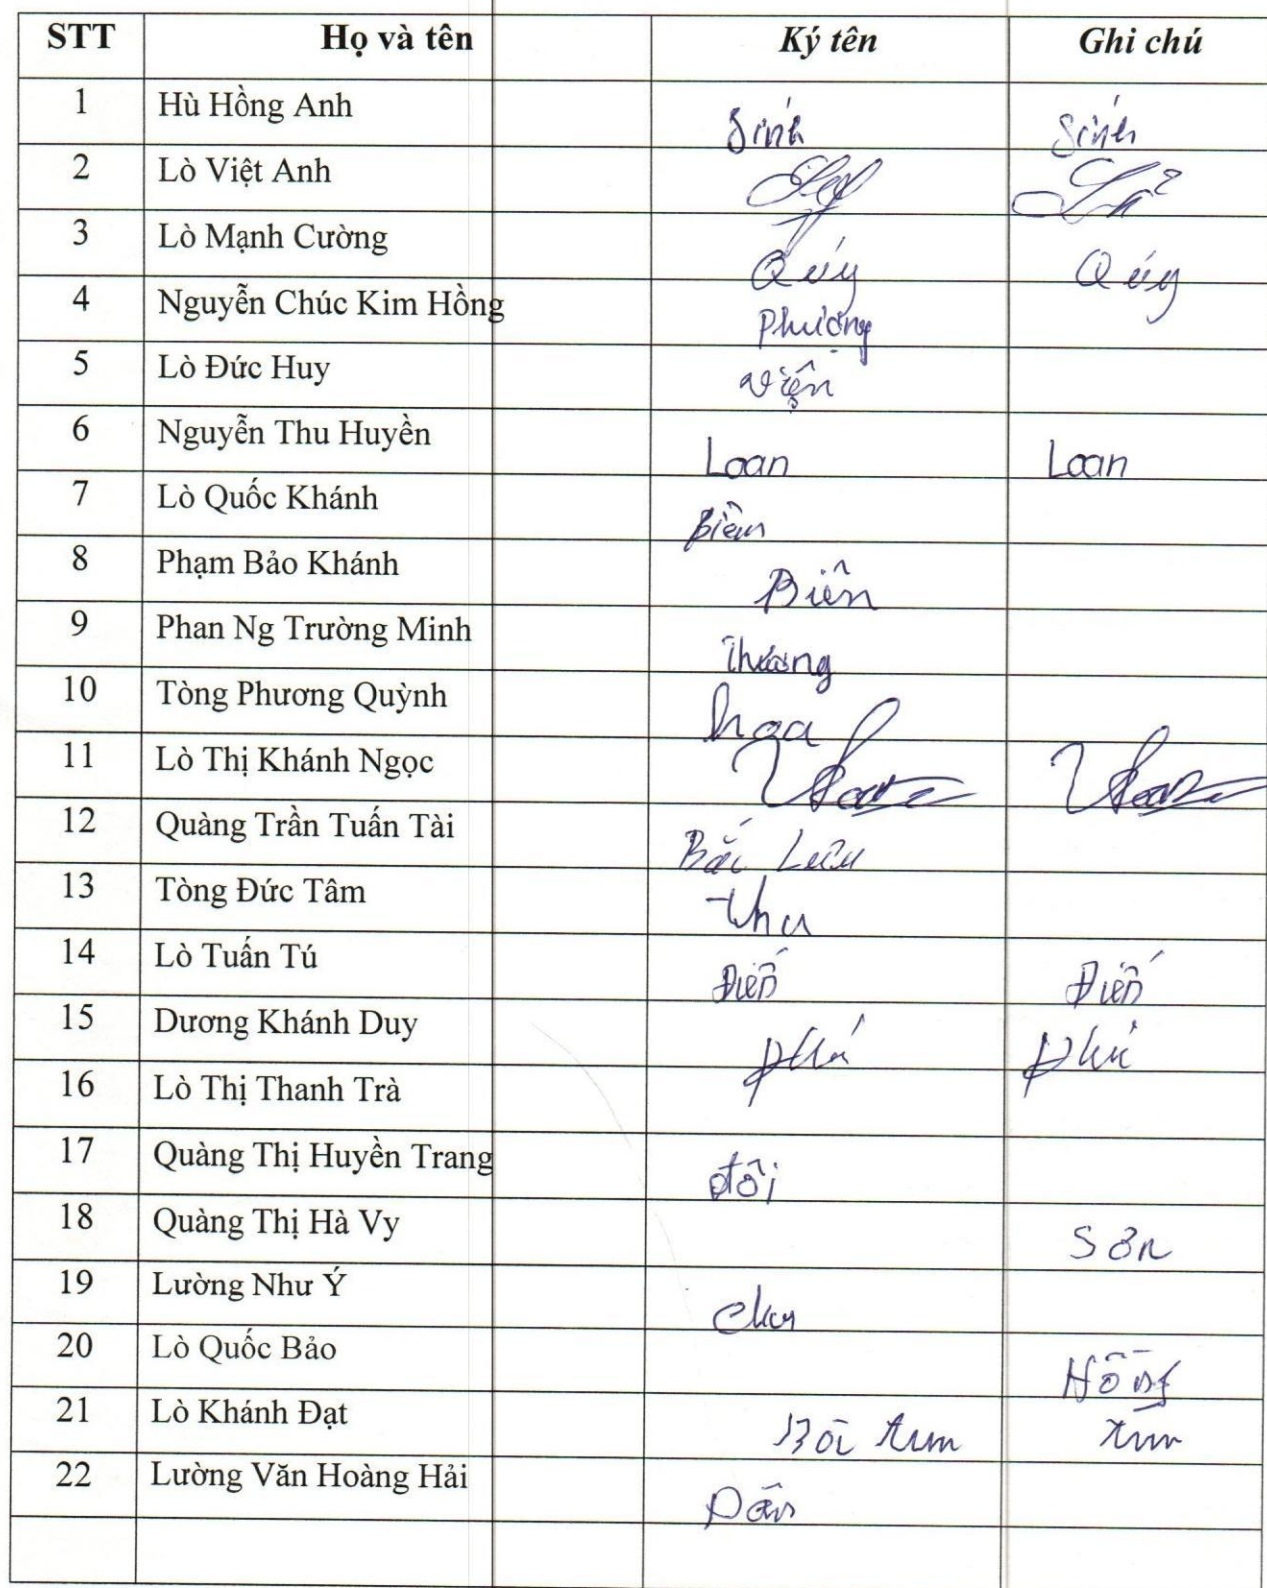 STT Họ và tên Ký tên Ghi chú
1 Hù Hồng Anh Sính Sính
2 Lò Việt Anh
3 Lò Mạnh Cường Qúy Qúy
4 Nguyễn Chúc Kim Hồng Phượng
5 Lò Đức Huy viện
6 Nguyễn Thu Huyền Loan Loan
7 Lò Quốc Khánh
8 Phạm Bảo Khánh Biên
9 Phan Ng Trường Minh Thương
10 Tòng Phương Quỳnh nga
11 Lò Thị Khánh Ngọc
12 Quàng Trần Tuấn Tài Lưu
13 Tòng Đức Tâm thu
14 Lò Tuấn Tú Điến Điến
15 Dương Khánh Duy
16 Lò Thị Thanh Trà
17 Quàng Thị Huyền Trang đôi
18 Quàng Thị Hà Vy Sơn
19 Lường Như Ý
20 Lò Quốc Bảo Hồng
21 Lò Khánh Đạt
22 Lường Văn Hoàng Hải